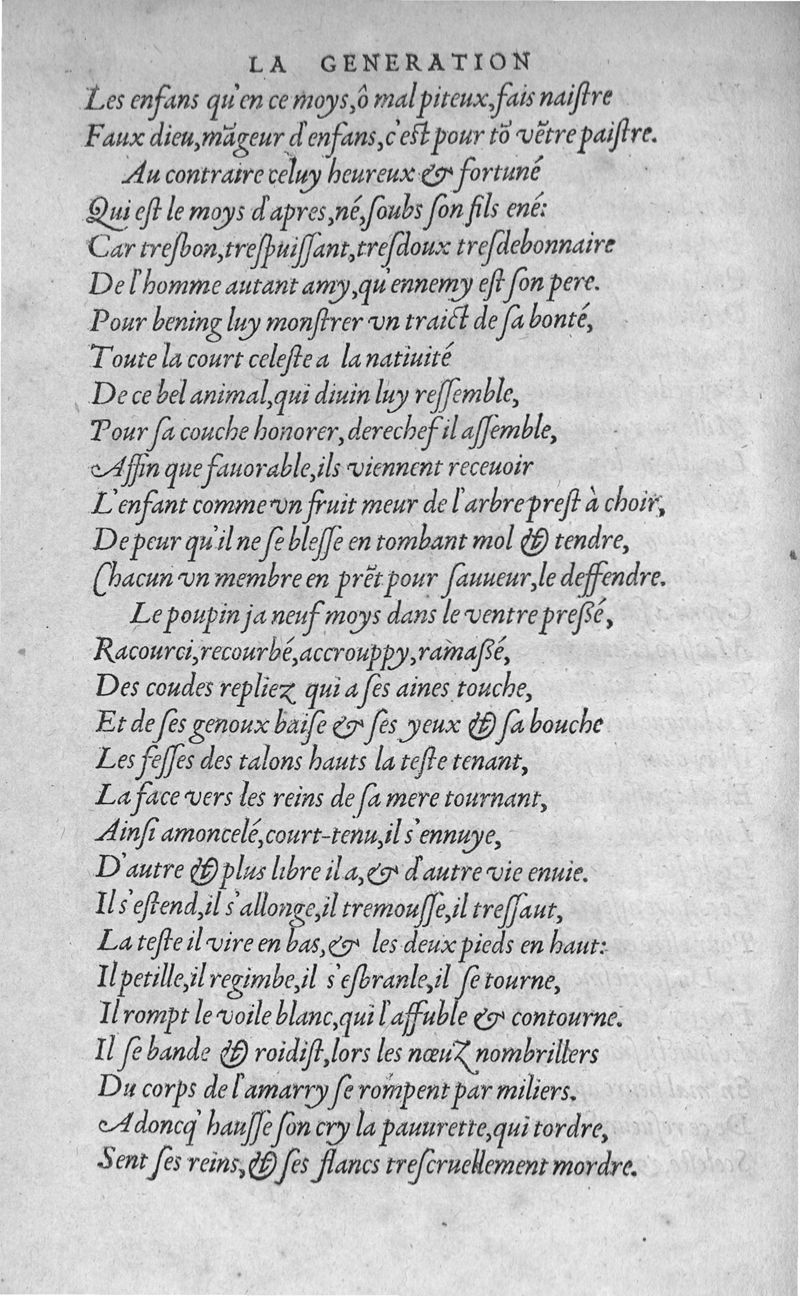 LA GENERATION
Les enfans qu'en ce moys,ô mal piteux,fais naiſtre
Faux dieu,mãgeur d'enfans,c'eſt pour tõ vẽtre paiſtre.
Au contraire celuy heureux & fortuné
Qui eſt le moys d'apres,né,ſoubs ſon fils ené:
Car treſbon,treſpuiſſant,treſdoux treſdebonnaire
De l'homme autant amy,qu'ennemy eſt ſon pere.
Pour bening luy monſtrer vn traict de ſa bonté,
Toute la court celeſte a la natiuité
De ce bel animal,qui diuin luy reſſemble,
Pour ſa couche honorer,derechef il aſſemble,
Affin que fauorable,ils viennent receuoir
L'enfant comme vn fruit meur de l'arbre preſt à choir,
De peur qu'il ne ſe bleſſe en tombant mol & tendre,
Chacun vn membre en prẽt pour ſauueur,le deffendre.
Le poupin ja neuf moys dans le ventre preßé,
Racourci,recourbé,accrouppy,ramaßé,
Des coudes repliez qui a ſes aines touche,
Et de ſes genoux baiſe & ſes yeux & ſa bouche
Les feſſes des talons hauts la teſte tenant,
La face vers les reins de ſa mere tournant,
Ainſi amoncelé,court-tenu,il s'ennuye,
D'autre & plus libre il a,& d'autre vie enuie.
Il s'eſtend,il s'allonge,il tremouſſe,il treſſaut,
La teſte il vire en bas,& les deux pieds en haut:
Il petille,il regimbe,il s'eſbranle,il ſe tourne,
Il rompt le voile blanc,qui l'affuble & contourne.
Il ſe bande & roidiſt,lors les nœuz nombrillers
Du corps de l'amarry ſe rompent par miliers.
Adoncq' hauſſe ſon cry la pauurette,qui tordre,
Sent ſes reins,& ſes flancs treſcruellement mordre.